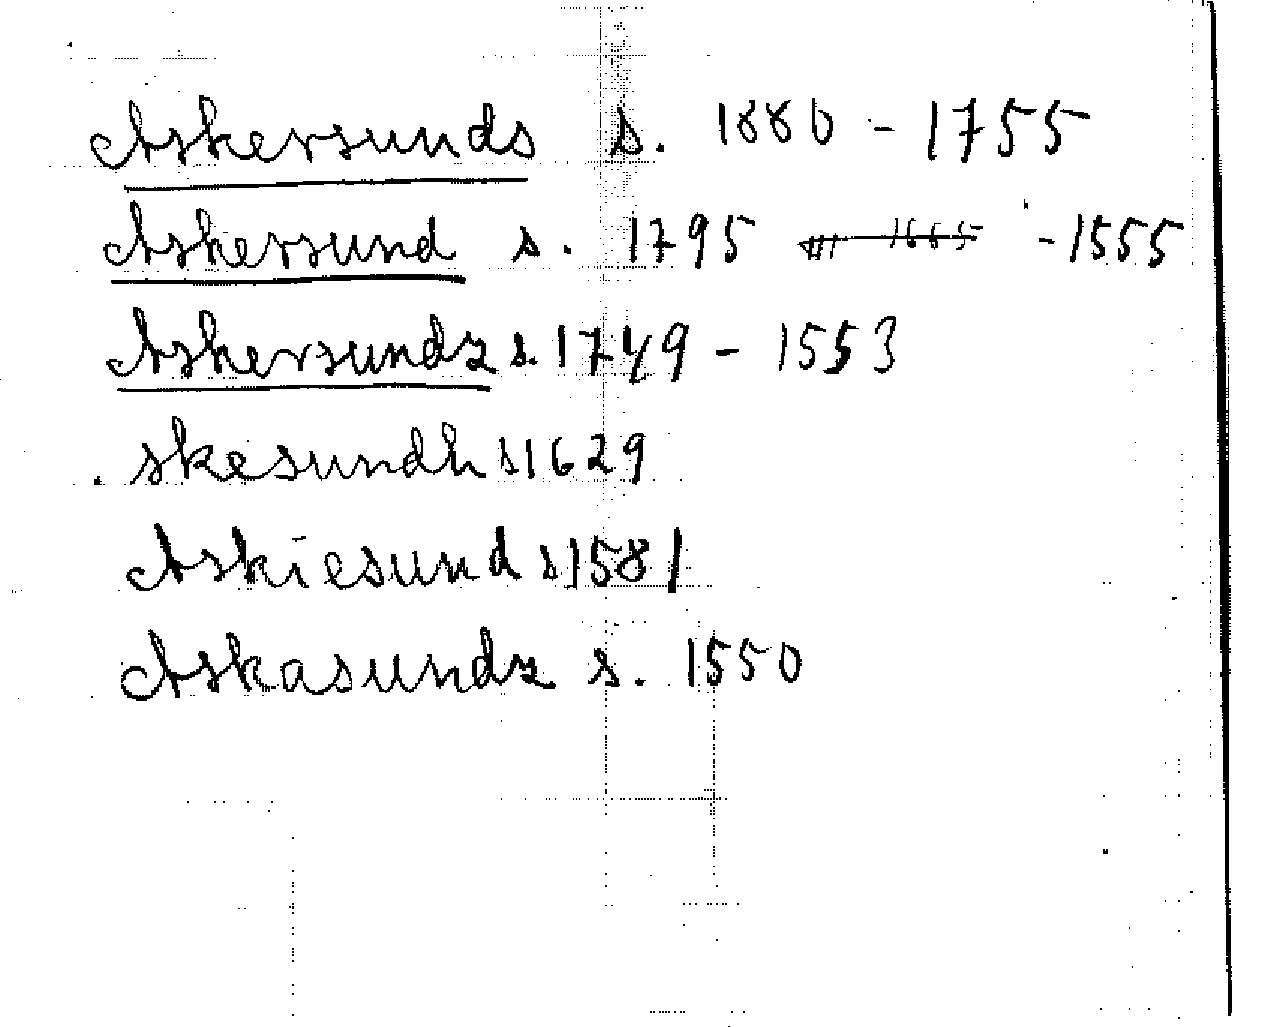 Askersunds s. 1880 - 1755
Askersund s. 1795 - 1555
Askersundz s. 1749 - 1553
skesundh s 1629
Askiesund s 1581
Askasundz s. 1550